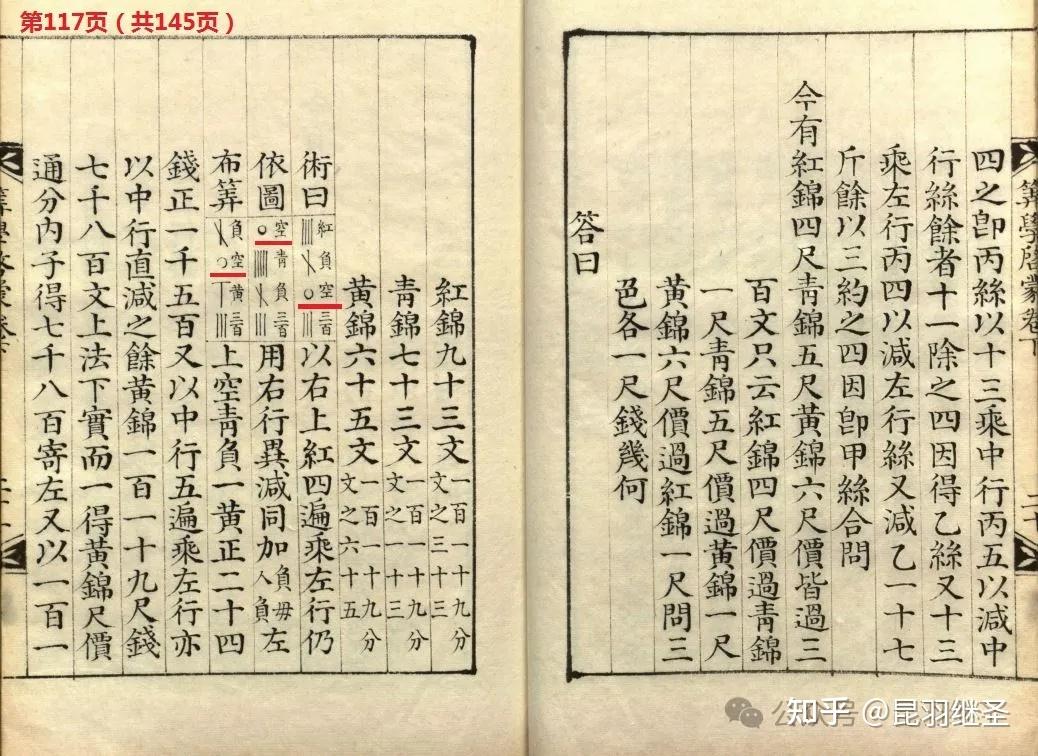 第117页（共145页）
四之卽丙絲以十三乘中行丙五以減中
行絲餘者十一除之四因得乙絲又十三
乘左行丙四以減左行絲又減乙一十七
斤餘以三約之四因卽甲絲合問
今有紅錦四尺青錦五尺黃錦六尺價皆過三
百文只云紅錦四尺價過青錦
一尺青錦五尺價過黃錦一尺
黃錦六尺價過紅錦一尺問三
色各一尺錢幾何
答曰
紅錦九十三文一百一十九分文之三十三
青錦七十三文一百一十九分文之一十三
黃錦六十五文一百一十九分文之六十五
術曰 紅 負 空 三百 以右上紅四遍乘左行仍
依圖 空 青 負 三百 用右行異減同加負毋人負左
布筭 負 空 黃 三百 上空青負一黃正二十四
錢正一千五百又以中行五遍乘左行亦
以中行直減之餘黃錦一百一十九尺錢
七千八百文上法下實而一得黃錦尺價
通分內子得七千八百寄左又以一百一
筭學啓蒙卷下
知乎 @昆羽继圣